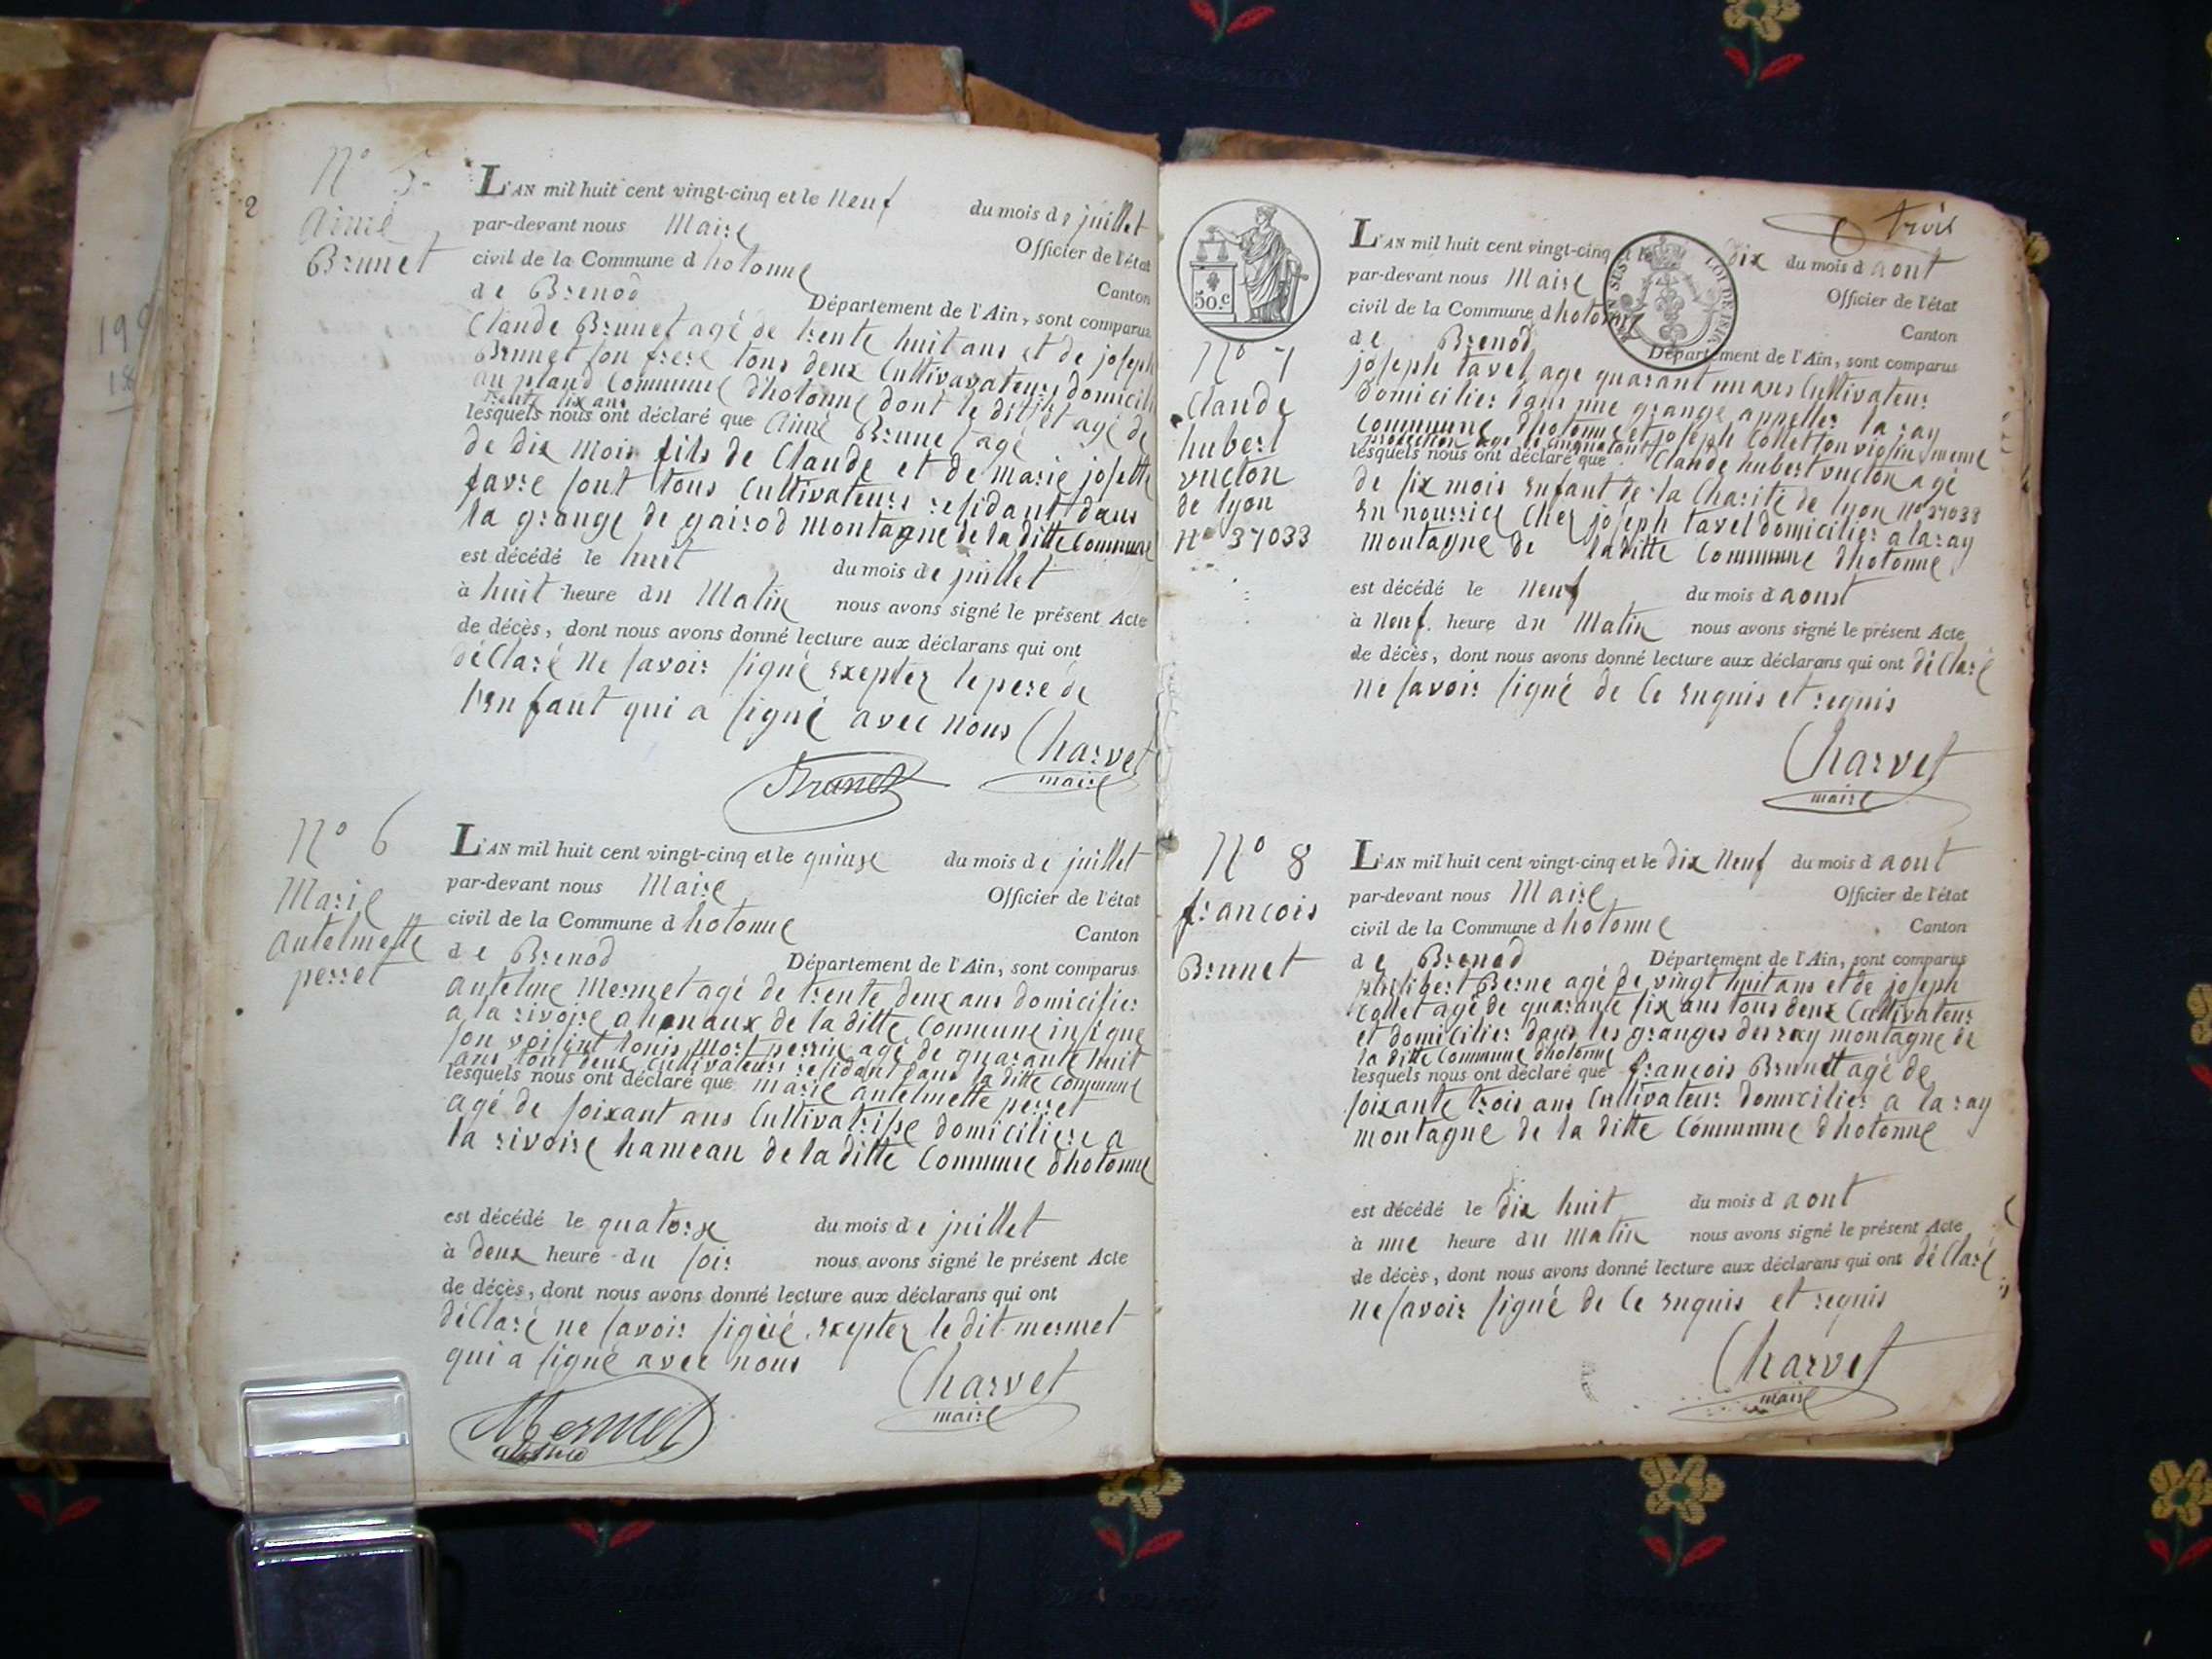 2
N° 5
aimé
Brunet
L'AN mil huit cent vingt-cinq et le neuf du mois de juillet
par-devant nous Maire Officier de l'état
civil de la Commune d hotonne Canton
de Brenod Département de l'Ain, sont comparus
Claude Brunet agé de trente huit ans et de joseph
Brunet son frere tous deux Cultivavateurs domicili
au pland Commune d'hotonne dont le dit et agé de
trente six ans
lesquels nous ont déclaré que aimé Brunet agé
de dix mois fils de Claude et de marie josette
favre sont tous Cultivateurs residant dans
la grange de gairod montagne de la ditte Commune
est décédé le huit du mois de juillet
à huit heure du Matin nous avons signé le présent Acte
de décès, dont nous avons donné lecture aux déclarans qui ont
déClaré ne savoir signé exepter le pere de
l'enfant qui a signé avec nous Charvet
maire
Brunet
N° 6
Marie
antelmette
perret
L'AN mil huit cent vingt-cinq et le quinse du mois de juillet
par-devant nous Maire Officier de l'état
civil de la Commune d hotonne Canton
de Brenod Département de l'Ain, sont comparus
antelme Mermet agé de trente deux ans domicilier
a la rivoire de la ditte Commune
son louis perrin agé de quarante huit
ans tout deux Cultivateurs residant dans la ditte Commune
lesquels nous ont déclaré que marie antelmette perret
agé de soixant ans Cultivatrisse domiciliere a
la rivoire hameau de la ditte Commune d'hotonne
est décédé le quatorse du mois de juillet
à deux heure du soir nous avons signé le présent Acte
de décès, dont nous avons donné lecture aux déclarans qui ont
déClaré ne savoir signé exepter le dit mermet
qui a signé avec nous Charvet
maire
Mermet
trois
50.c
LOI DE 1816
N° 7
Claude
hubert
vucton
de lyon
n° 37033
L'AN mil huit cent vingt-cinq et le dix du mois d aout
par-devant nous Maire Officier de l'état
civil de la Commune d hotonne Canton
de Brenod Département de l'Ain, sont comparus
joseph tavel age quarant un ans Cultivateur
domicilier dans une grange appeller la ray
Commune d'hotonne et joseph Collet son voisin meme
lesquels nous ont déclaré que Claude hubert vucton agé
de six mois enfant de la Charité de lyon n° 37033
en nourrice Chez joseph tavel domicilier a la ray
montagne de laditte Commune d'hotonne
est décédé le neuf du mois d aoust
à neuf heure du Matin nous avons signé le présent Acte
de décès, dont nous avons donné lecture aux déclarans qui ont déClaré
ne savoir signé de Ce enquis et requis
Charvet
maire
N° 8
francois
Brunet
L'AN mil huit cent vingt-cinq et le dix neuf du mois d aout
par-devant nous Maire Officier de l'état
civil de la Commune d hotonne Canton
de Brenod Département de l'Ain, sont comparus
philibert Berne agé de vingt huit ans et de joseph
Collet agé de quarante six ans tous deux Cultivateur
et domicilier dans les granges des ray montagne de
la ditte Commune d'hotonne
lesquels nous ont déclaré que françois Brunett agé de
soixante trois ans Cultivateur domicilier a la ray
montagne de la ditte Commune d'hotonne
est décédé le dix huit du mois d aout
à une heure du matin nous avons signé le présent Acte
de décès, dont nous avons donné lecture aux déclarans qui ont déClaré
ne savoir signé de Ce enquis et requis
Charvet
maire